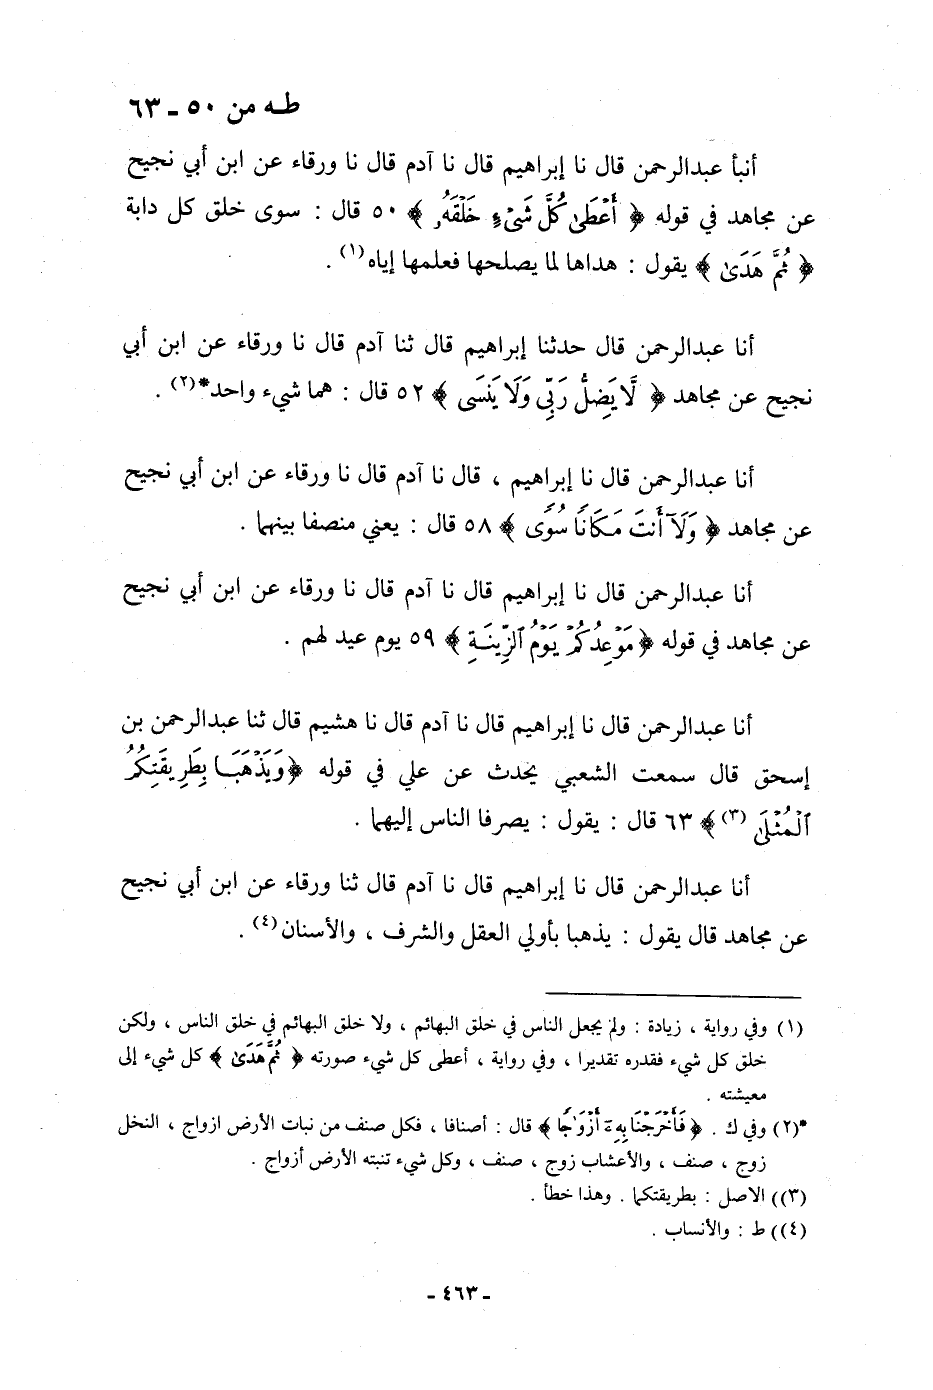 طـه من ٥٠ ـ ٦٣
أنبأ عبدالرحمن قال نا إبراهيم قال نا آدم قال نا ورقاء عن ابن أبي نجيح
عن مجاهد في قوله ﴿ أَعْطَىٰ كُلَّ شَىْءٍ خَلْقَهُۥ ﴾ ٥٠ قال : سوى خلق كل دابة
﴿ ثُمَّ هَدَىٰ ﴾ يقول : هداها لما يصلحها فعلمها إياه(١) .
أنا عبدالرحمن قال حدثنا إبراهيم قال ثنا آدم قال نا ورقاء عن ابن أبي
نجيح عن مجاهد ﴿ لَّا يَضِلُّ رَبِّى وَلَا يَنسَى ﴾ ٥٢ قال : هما شيء واحد*(٢) .
أنا عبدالرحمن قال نا إبراهيم ، قال نا آدم قال نا ورقاء عن ابن أبي نجيح
عن مجاهد ﴿ وَلَآ أَنتَ مَكَانًا سُوًى ﴾ ٥٨ قال : يعني منصفا بينهما .
أنا عبدالرحمن قال نا إبراهيم قال نا آدم قال نا ورقاء عن ابن أبي نجيح
عن مجاهد في قوله ﴿ مَوْعِدُكُمْ يَوْمُ ٱلزِّينَةِ ﴾ ٥٩ يوم عيد لهم .
أنا عبدالرحمن قال نا إبراهيم قال نا آدم قال نا هشيم قال ثنا عبدالرحمن بن
إسحق قال سمعت الشعبي يحدث عن علي في قوله ﴿ وَيَذْهَبَا بِطَرِيقَتِكُمُ
ٱلْمُثْلَىٰ (٣) ﴾ ٦٣ قال : يقول : يصرفا الناس إليهما .
أنا عبدالرحمن قال نا إبراهيم قال نا آدم قال ثنا ورقاء عن ابن أبي نجيح
عن مجاهد قال يقول : يذهبا بأولي العقل والشرف ، والأسنان(٤) .
(١) وفي رواية ، زيادة : ولم يجعل الناس في خلق البهائم ، ولا خلق البهائم في خلق الناس ، ولكن
خلق كل شيء فقدره تقديرا ، وفي رواية ، أعطى كل شيء صورته ﴿ ثُمَّ هَدَىٰ ﴾ كل شيء إلى
معيشته .
*(٢) وفي ك . ﴿ فَأَخْرَجْنَا بِهِۦٓ أَزْوَٰجًا ﴾ قال : أصنافا ، فكل صنف من نبات الأرض ازواج ، النخل
زوج ، صنف ، والأعشاب زوج ، صنف ، وكل شيء تنبته الأرض أزواج .
(٣)) الاصل : بطريقتكما . وهذا خطأ .
(٤)) ط : والأنساب .
ـ ٤٦٣ ـ